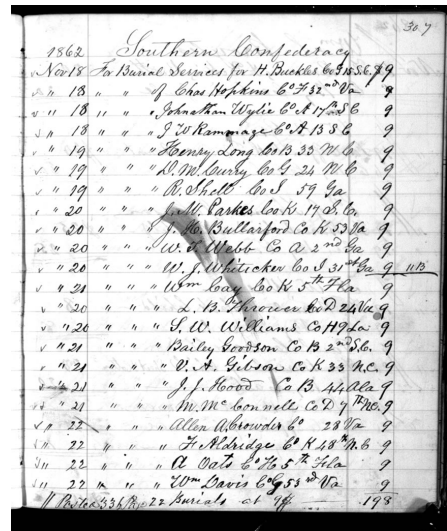 307
1862 Southern Confederacy
v Nov 18 For Burial Services for H. Buckles Co G 15 S.C. $ 9
v " 18 " " " " Chas Hopkins Co F 32nd Va 9
v " 18 " " " " Johnathan Wylie Co A 17th S C 9
v " 18 " " " " J W Rammage Co A 13 S C 9
v " 19 " " " " Henry Long Co B 33 N C 9
v " 19 " " " " D. M. Curry Co G 24 N C 9
v " 19 " " " R. Shell Co I 59 Ga 9
v " 20 " " " J. W. Parkes Co K 17 S. C. 9
v " 20 " " " J. H. Bullarford Co K 53 Va 9
v " 20 " " " W. T. Webb Co A 2nd Ga 9
v " 20 " " " W. J. Whiticker Co I 31st Ga 9
v " 21 " " " Wm Cay Co K 5th Fla 9
v " 20 " " " L. B. Thrower Co D 24 Va 9
v " 20 " " " S. W. Williams Co H 9 La 9
v " 21 " " " Bailey Goodson Co B 2nd S.C. 9
v " 21 " " " V. A. Gibson Co K 33 N.C. 9
" 21 " " " J. J. Hood Co B 44 Ala 9
v " 21 " " " M. McConnell Co D 7th N.C. 9
v " 22 " " " Allen A. Crowder Co 28 Va 9
v " 22 " " " F. Aldridge Co K 48th N. C 9
v " 22 " " " A Oats Co H 5th Fla 9
v " 22 " " " Wm Davis Co G 53rd Va 9
22 Burials at 9$ 198